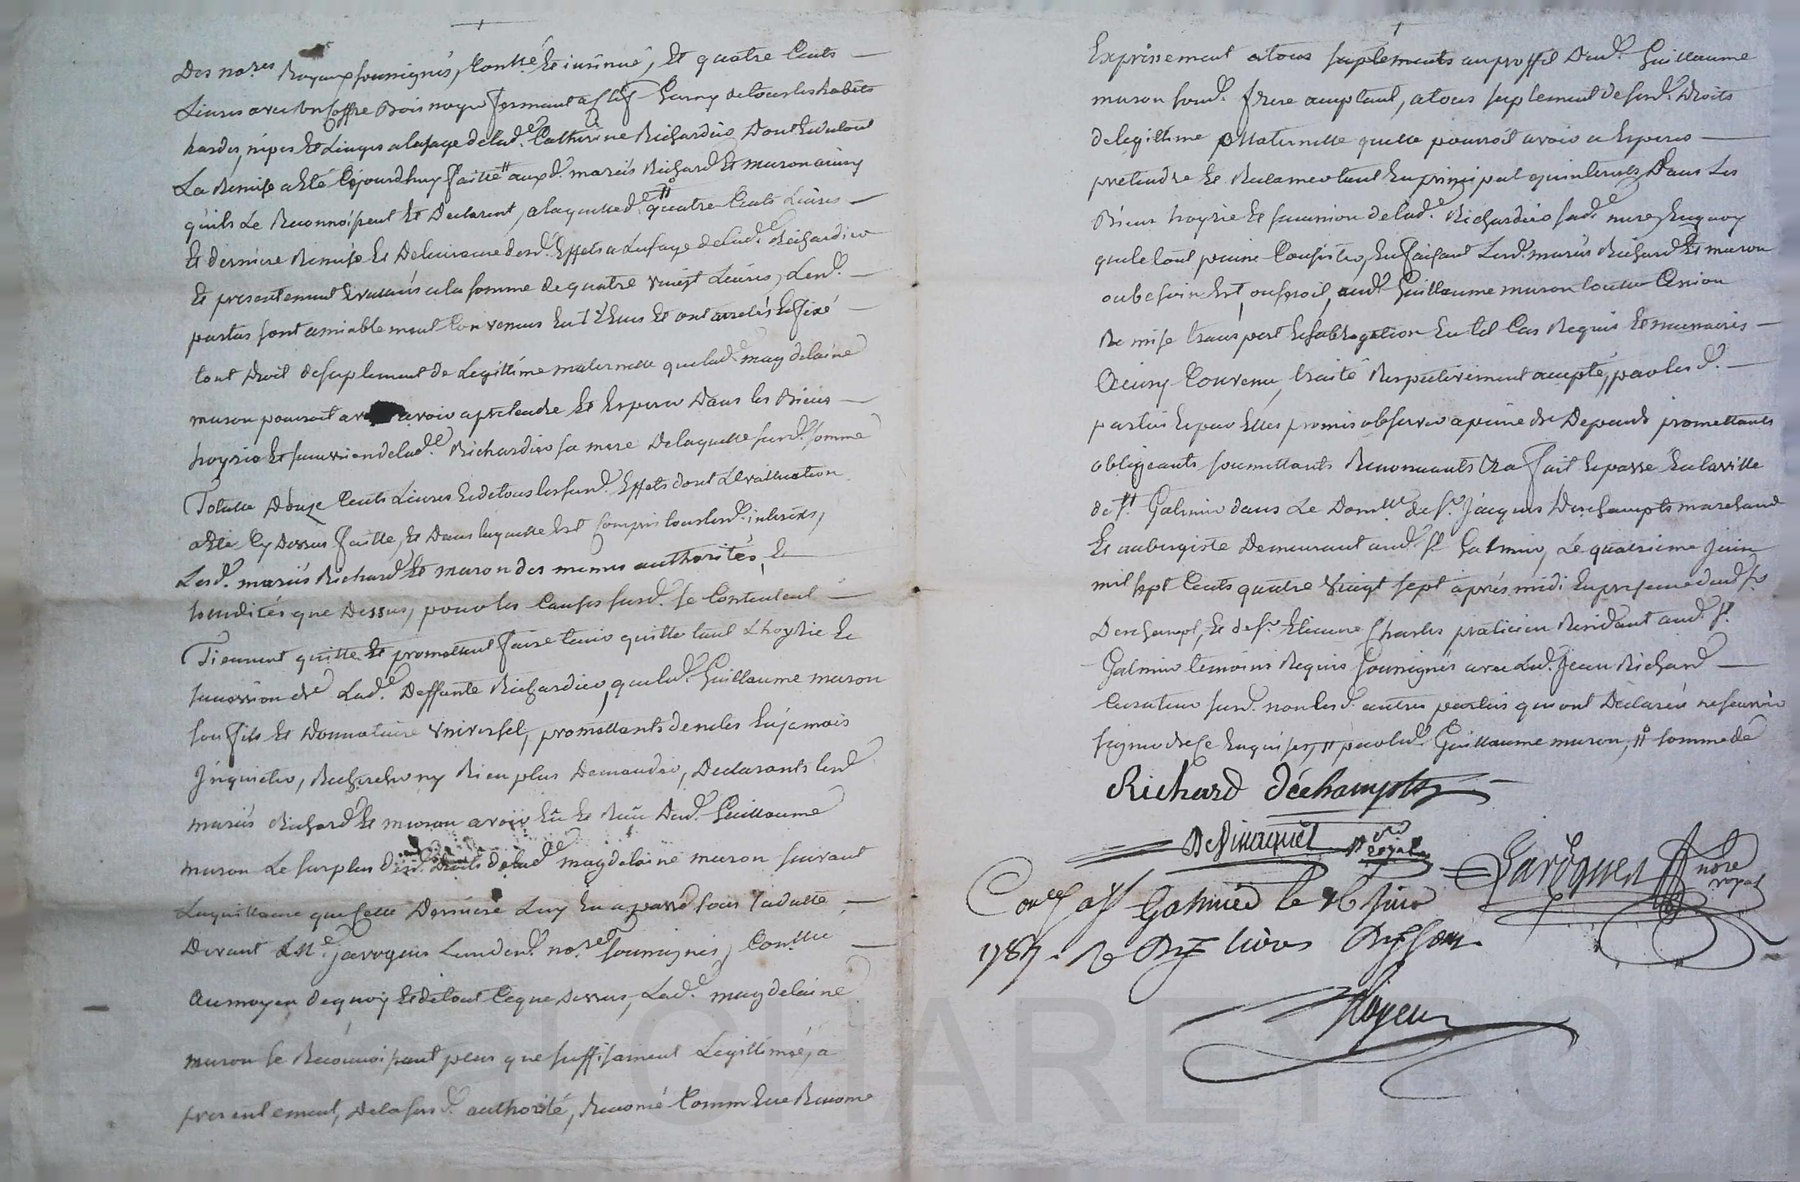 Des no.res Royaux soussignés, Conllé Et insinué, Et quatre Cents
Livres avec un Coffre Bois noyer fermant a Clef Garny de tous les habits
hardes, nipes Et Linges a lusage de lad.e Catherine Richardier Dont Du tout
La Remise a Eté Cejourdhuy faitte aux d. mariés Richard Et murson ainsy
quils Le Reconnoissent Et Declarent, a laquelle d. quatre Cents Livres
Et derniere Remise Et Delivrance desd. Effets a Lusage de Lad.e Richardier
Et presentement Evalués a la somme de quatre vingt Livres, Lesd.
parties sont amiablement Convenus Entr'Eux Et ont arretés Et fixé
tout Droit de suplement de Legittime maternelle que lad.e magdelaine
murson pourroit avoir a pretendre Et Esperer Dans les Biens
hoyrie Et succession de lad.e Richardier sa mere De laquelle susd. somme
Totalle Douze Cents Livres Et de tous les susd. Effets dont LEvalluation
a Eté Cy Dessus faitte, Et Dans laquelle Est Compris tous lesd. interêts,
Lesd. mariés Richard Et murson des memes authorités, Et
que Dessus, pour les Causes susd. se Contentent
Tiennent quitte Et promettent faire tenir quitte tant Lhoyrie Et
succession de Lad.e Deffunte Richardier, que led. Guillaume murson
son fils Et Donnataire Universel, promettants de ne les En jamais
Inquieter, Rechercher ny Rien plus Demander, Declarants lesd.
mariés Richard Et murson avoir Eû Et Reçû Dud. Guillaume
murson Le surplus des d. Droits de lad.e magdelaine murson suivant
La quittance que Cette Derniere Luy En a passé sous sa datte,
Devant M.e Jarrogues L'un des d. no.res soussignés, Conllé
Au moyen de quoy Et de tout Ce que Dessus, Lad.e magdelaine
murson se Reconnoissant plus que suffisament Legittimée, a
presentement, De la susd. authorité, Renoncé Comme Elle Renonce
Expressement a tous suplements au proffit Dud. Guillaume
murson sond. frere acceptant, a tous suplement de sesd. Droits
de legittime Maternelle quelle pourroit avoir a Esperer
pretendre Et Reclamer tant En principal qu'interets Dans Les
Biens hoyrie Et succession de lad.e Richardier sad.e mere, Enquoy
que le tout puisse Consister, En faisant Lesd. mariés Richard Et murson
ou besoin Est, ou seroit, aud. Guillaume murson toutte Cession
Remise transport Et subrogation En tel Cas Requis Et necessaires
Ainsy Convenu, traité Respectivement accepté, par lesd.
parties Et par Elles promis observer a peine de Depends promettants
obligeants soumettants Renonceants &a fait Et passé En la ville
de S.t Galmier dans Le Domlle de s.r Jacques Deschampts marchand
Et aubergiste Demeurant aud. S.t Galmier, Le quatrieme Juin
mil sept Cents quatre vingt sept aprés midi En presence dud. s.r
Deschampt, Et de s.r Etienne Charles praticien Residant aud. S.t
Galmier temoins Requis soussignés avec Led. Jean Richard
Curateur susd. non lesd. autres parties qui ont Déclarés ne scavoir
signer de ce Enquises, // par led. Guillaume murson, // somme de
Richard Dechampts
De Vinaquet n.re royal
Jarrogues no.re royal
Conllé a S.t Galmier le 16 juin
1787. R Dix livres Dix sous
Royeur
J CHAREYRON